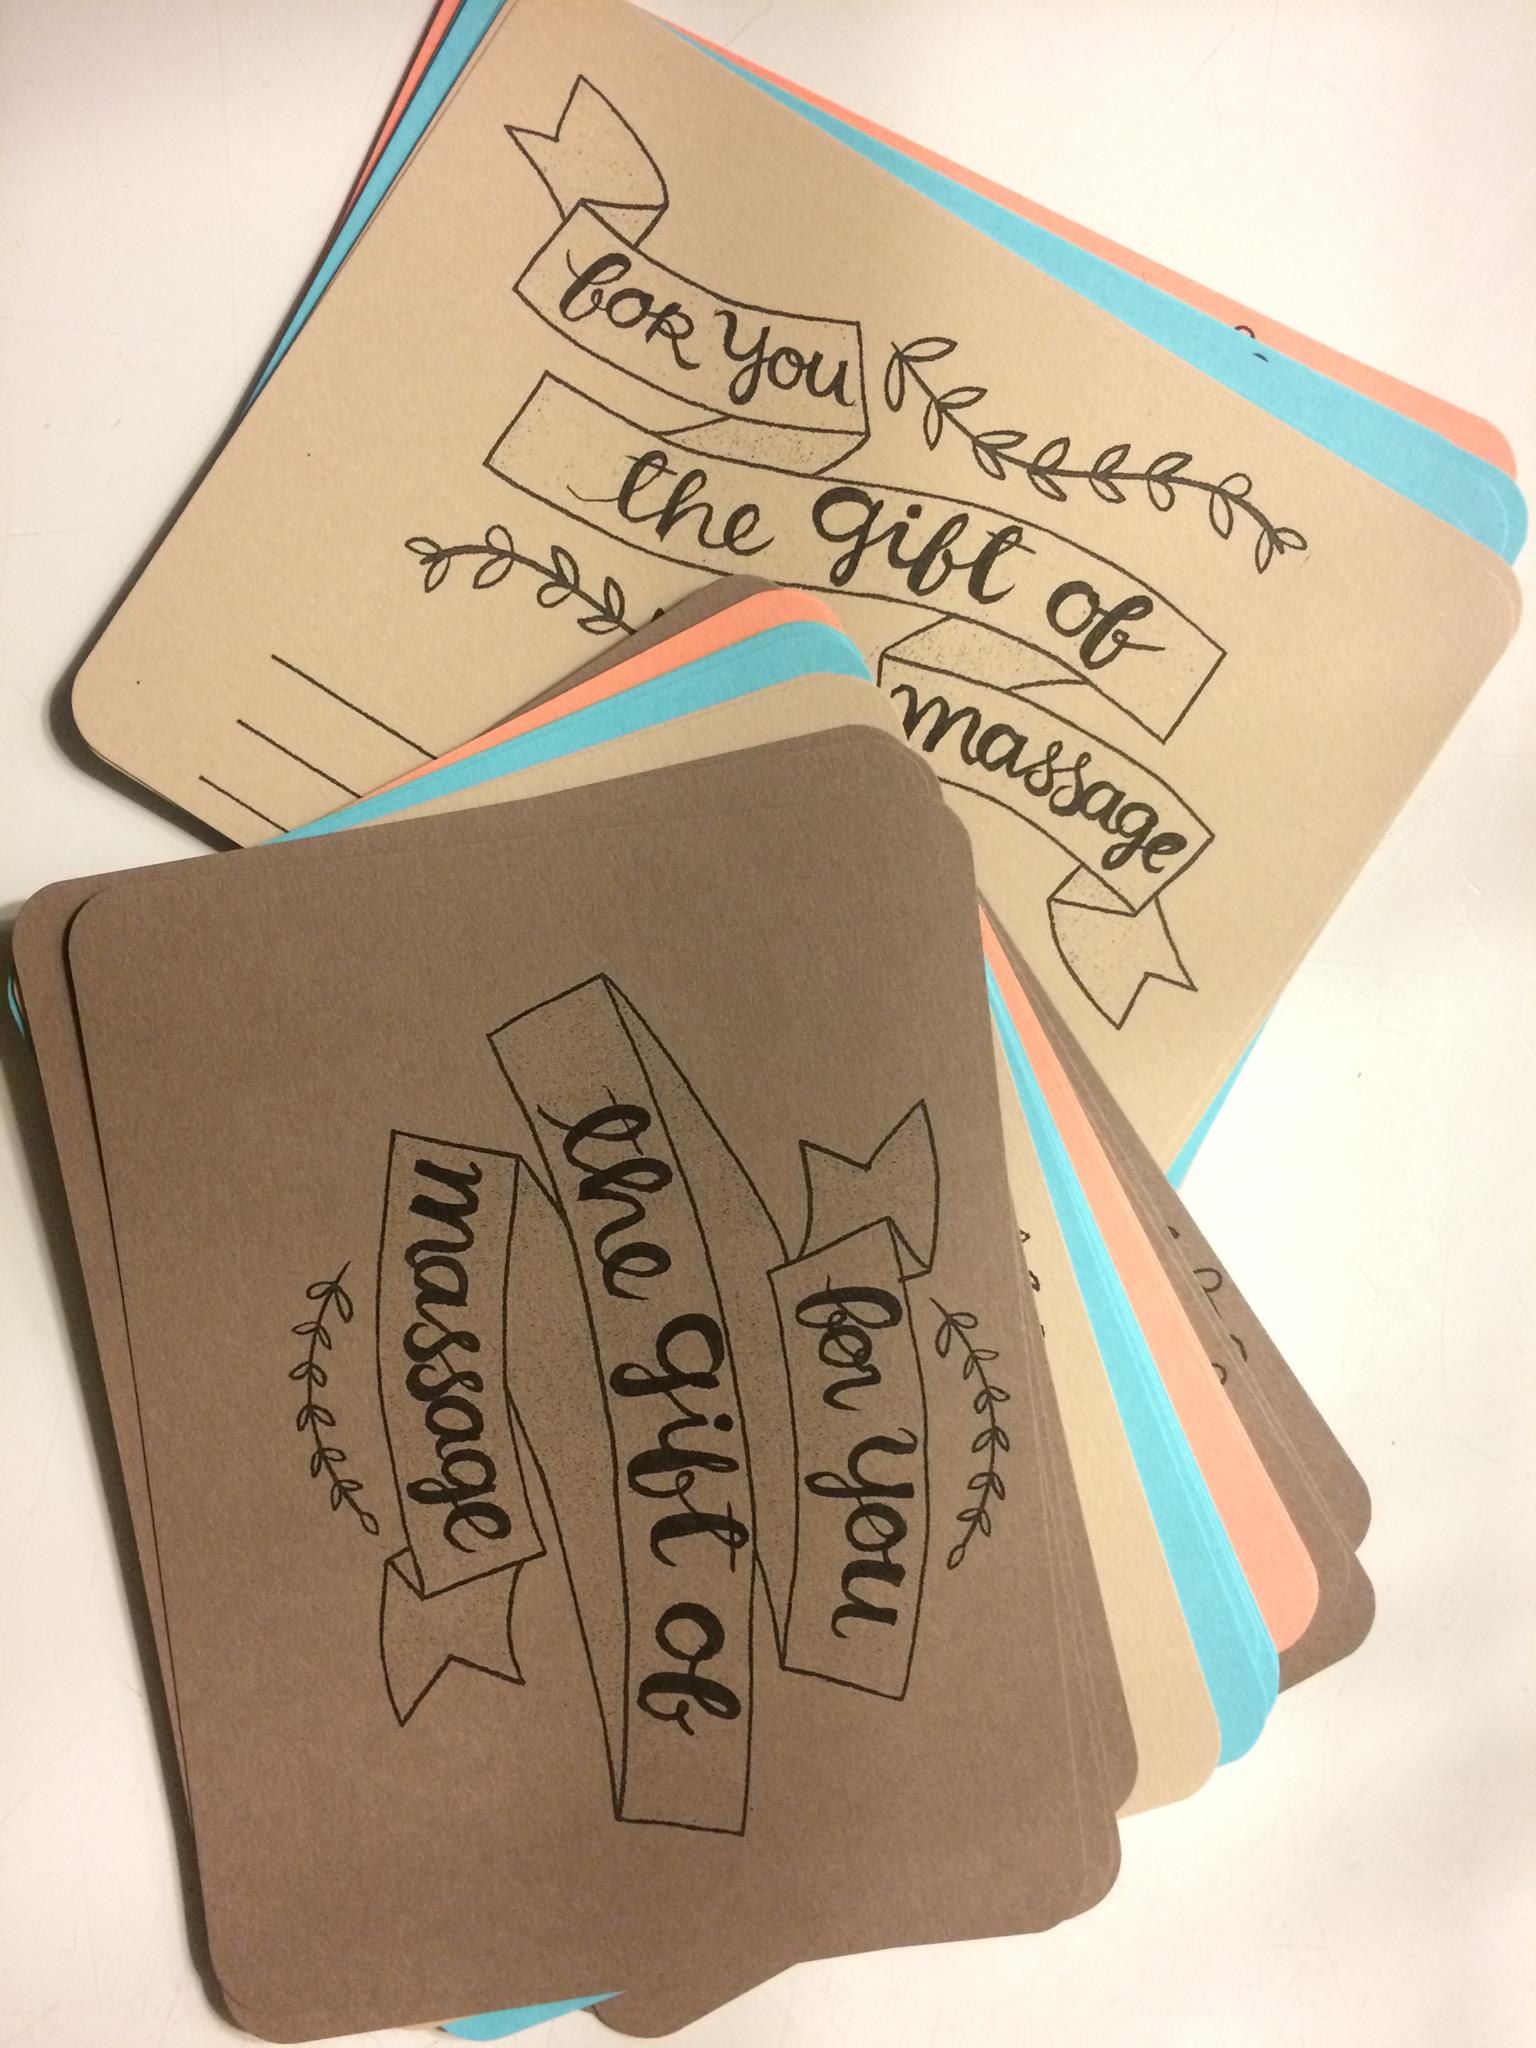 for you
the gift of
massage
for you
the gift of
massage